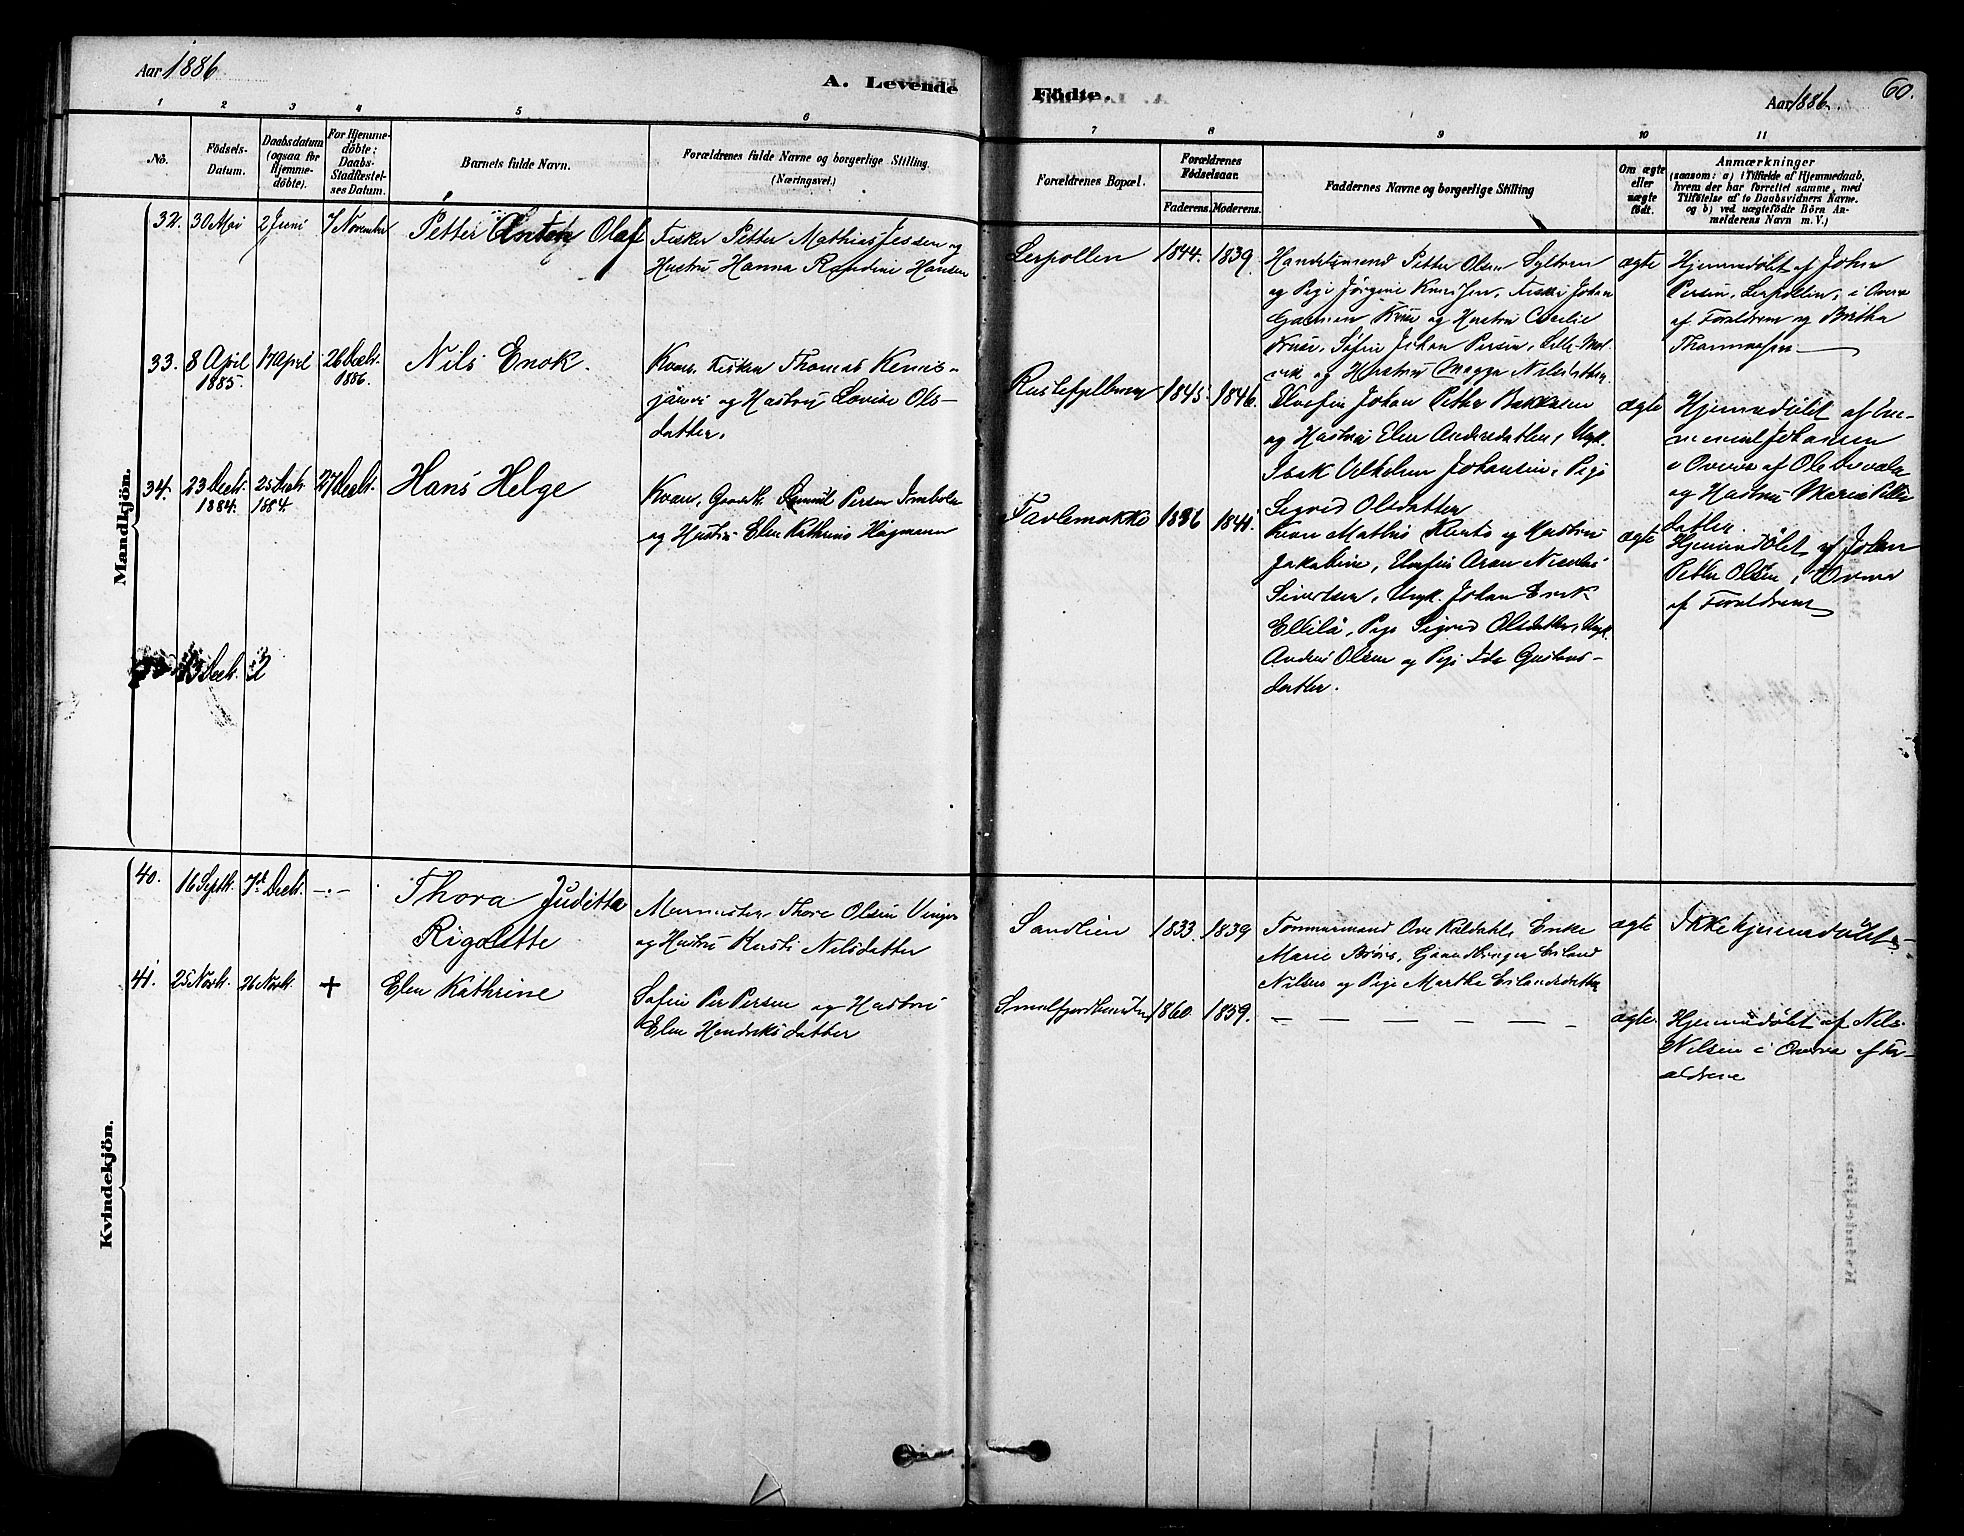 Aar 1886.
A. Levende
Födte.
Aar 1886.
60.
1 2 3 4 5 6 7 8 9 10 11
No.
Födsels-
Datum.
Daabsdatum
(ogsaa for
Hjemme-
döbte).
For Hjemme-
döbte:
Daabs-
Stadfæstel-
ses Datum.
Barnets fulde Navn.
Forældrenes fulde Navne og borgerlige Stilling.
(Næringsvei.)
Forældrenes Bopæl.
Forældrenes
Födselsaar.
Faderens. Moderens.
Faddernes Navne og borgerlige Stilling
Om ægte
eller
uægte
födt.
Anmærkninger
(saasom: a) i Tilfælde af Hjemmedaab,
hvem der har forrettet samme, med
Tilföielse af to Daabsvidners Navne.
og b) ved uægtefödte Börn An-
melderens Navn m. V.)
Mandkjön.
32. 30 Mai 2 Juni 7 November
Petter Anton Olaf
Fisker Petter Mathias Jessen og
Hustru Hanna Randine Hansen
Lerpollen 1844. 1839.
Handelsmand Petter Olsen
og Pige Jörgine Fisker Johan
og Hustru Cecilie
Johan Persen,
og Hustru Magga Nilsdatter
ægte
Hjemmedöbt af Johan
Persen, Lerpollen, i Overv
af Forældrene og Britha
Thomassen
33. 8 April 17 April 26 Decbr.
1885 1886.
Nils Enok.
Kvæn. Fisker Thomas Kemis-
järvi og Hustru Lovise Ols-
datter.
Rustefjelbunn 1845. 1846.
Johan Petter
og Hustru Elen Andersdatter, Ungk.
Isak Johansen, Pige
Sigrid Olsdatter
ægte
Hjemmedöbt af
Johansen
i Overv af Ole
og Hustru Maria Petter
datter.
34. 23 Decbr. 25 Decbr. 27 Decbr.
1884. 1884.
Hans Helge
Kvæn, Gaardbr. Samuel Persen
og Hustru Elen Kathrine Hagmann
1836 1841.
Kvæn Mathis og Hustru
Jakobine, Aron
Sivertsen, Ungk. Johan
Pige Sigrid Olsdatter, Ungk.
Andreas Olsen og Pige Ida Gustavs-
datter.
ægte
Hjemmedöbt af Johan
Petter Olsen i Overv
af Forældrene
13 Decbr. 2
Kvindekjön.
40. 16 Septbr. 7d Decbr. —.—
Thora Juditta
Rigolette
Murmester Thore Olsen Vinger
og Hustru Kersti Nilsdatter
Sandlien 1833. 1839
Tømmermand Ove Enke
Marie Gaardbruger Erland
Nilsen og Pige Marthe Erlandsdatter
ægte
Ikke hjemmedöbt
41. 25 Novbr. 26 Novbr. +
Elen Kathrine
Søfin Per Persen og Hustru
Elen Hendriksdatter
1860. 1859.
— — — — — —
ægte.
Hjemmedöbt af Nils
Nilsen i Overv af For-
ældrene